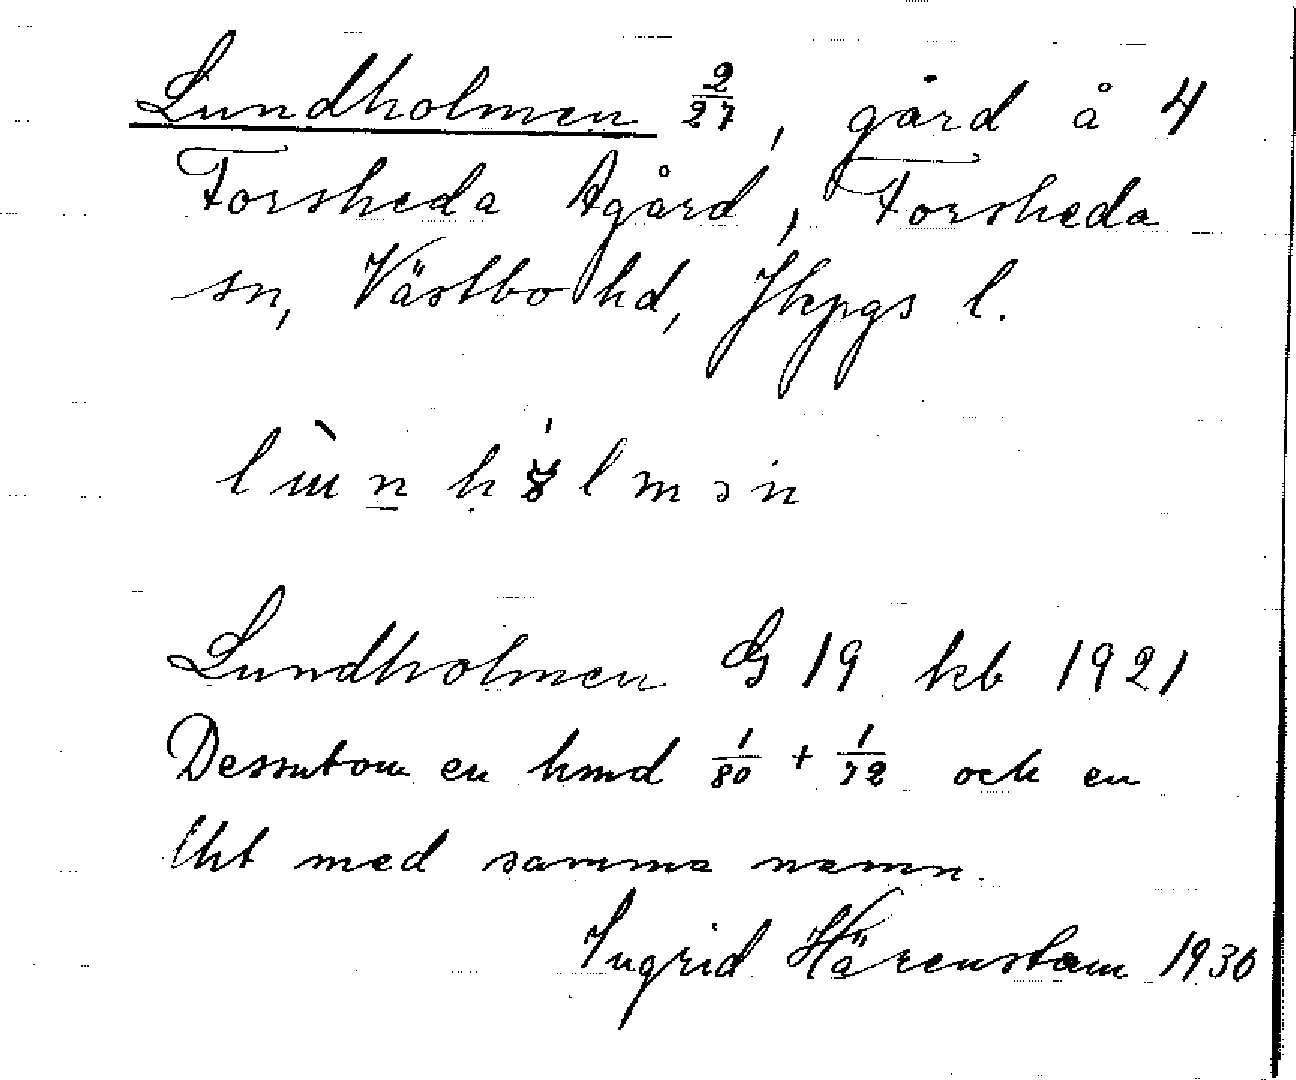 Lundholmen 2/27, gård å 4
Forsheda Agård, Forsheda
sn, Västbo hd, Jkpgs l.
Lundholmen G 19 kb 1921
Dessutom en hmd 1/80 + 1/72 och en
lht med samma namn.
Ingrid Härenstam 1930